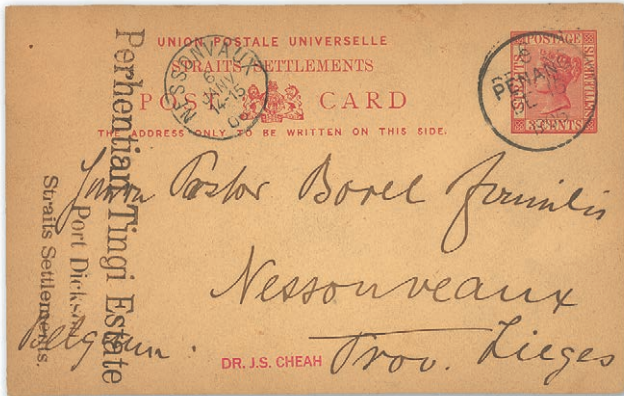 UNION POSTALE UNIVERSELLE
STRAITS SETTLEMENTS
POST CARD
THE ADDRESS ONLY TO BE WRITTEN ON THIS SIDE.
NESSONVAUX
6
JANV
12-15
POSTAGE
STRAITS SETTLEMENTS
3 CENTS
PENANG
Perhentian Tingi Estate
Port Dickson
Straits Settlements.
Pastor Borel
Nessonveaux
Prov. Lieges
Belgium.
DR. J.S. CHEAH